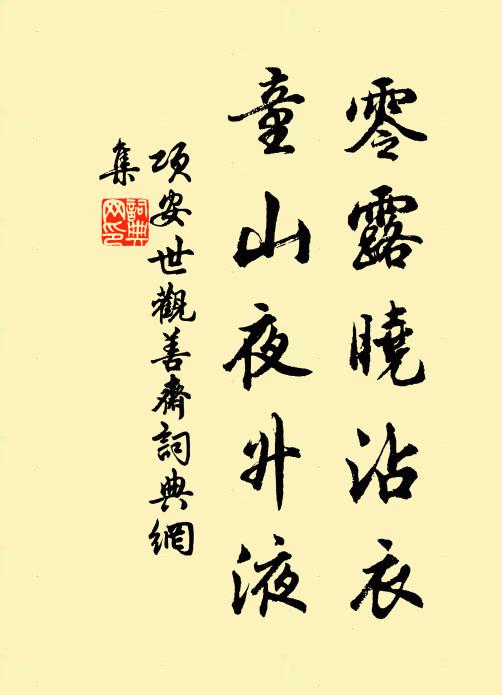 零露曉沾衣
童山夜升液
項安世觀善齋詞典網
集
詞典網印